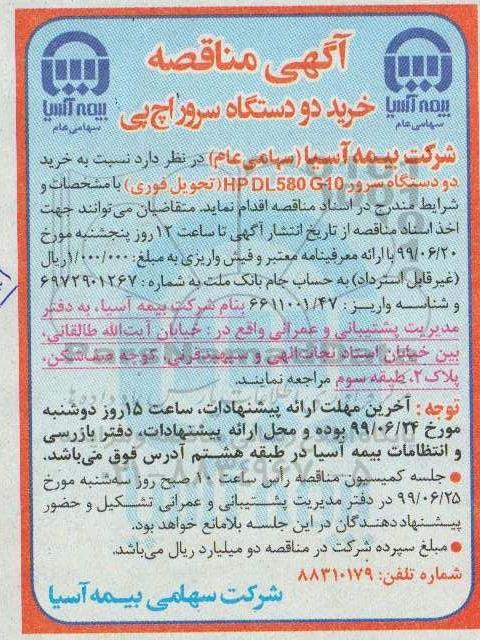 آگهی مناقصه
خرید دو دستگاه سرور اچ‌پی
بیمه آسیا
سهامی عام
بیمه آسیا
سهامی عام
شرکت بیمه آسیا (سهامی عام) در نظر دارد نسبت به خرید
دو دستگاه سرور HP DL580 G10 (تحویل فوری) با مشخصات و
شرایط مندرج در اسناد مناقصه اقدام نماید. متقاضیان می‌توانند جهت
اخذ اسناد مناقصه از تاریخ انتشار آگهی تا ساعت ۱۲ روز پنجشنبه مورخ
۹۹/۰۶/۲۰ با ارائه معرفینامه معتبر و فیش واریزی به مبلغ: ۱/۰۰۰/۰۰۰ ریال
(غیرقابل استرداد) به حساب جام بانک ملت به شماره: ۶۹۷۲۹۰۱۲۶۷
و شناسه واریز: ۶۶۱۱۰۰۱/۴۷ بنام شرکت بیمه آسیا، به دفتر
مدیریت پشتیبانی و عمرانی واقع در: خیابان آیت‌الله طالقانی،
بین خیابان استاد نجات‌الهی و سپهبدقرنی، کوچه صف‌شکن،
پلاک ۲، طبقه سوم مراجعه نمایند.
توجه: آخرین مهلت ارائه پیشنهادات، ساعت ۱۵ روز دوشنبه
مورخ ۹۹/۰۶/۲۴ بوده و محل ارائه پیشنهادات، دفتر بازرسی
و انتظامات بیمه آسیا در طبقه هشتم آدرس فوق می‌باشد.
● جلسه کمیسیون مناقصه رأس ساعت ۱۰ صبح روز سه‌شنبه مورخ
۹۹/۰۶/۲۵ در دفتر مدیریت پشتیبانی و عمرانی تشکیل و حضور
پیشنهاد دهندگان در این جلسه بلامانع خواهد بود.
● مبلغ سپرده شرکت در مناقصه دو میلیارد ریال می‌باشد.
شماره تلفن: ۸۸۳۱۰۱۷۹
شرکت سهامی بیمه آسیا